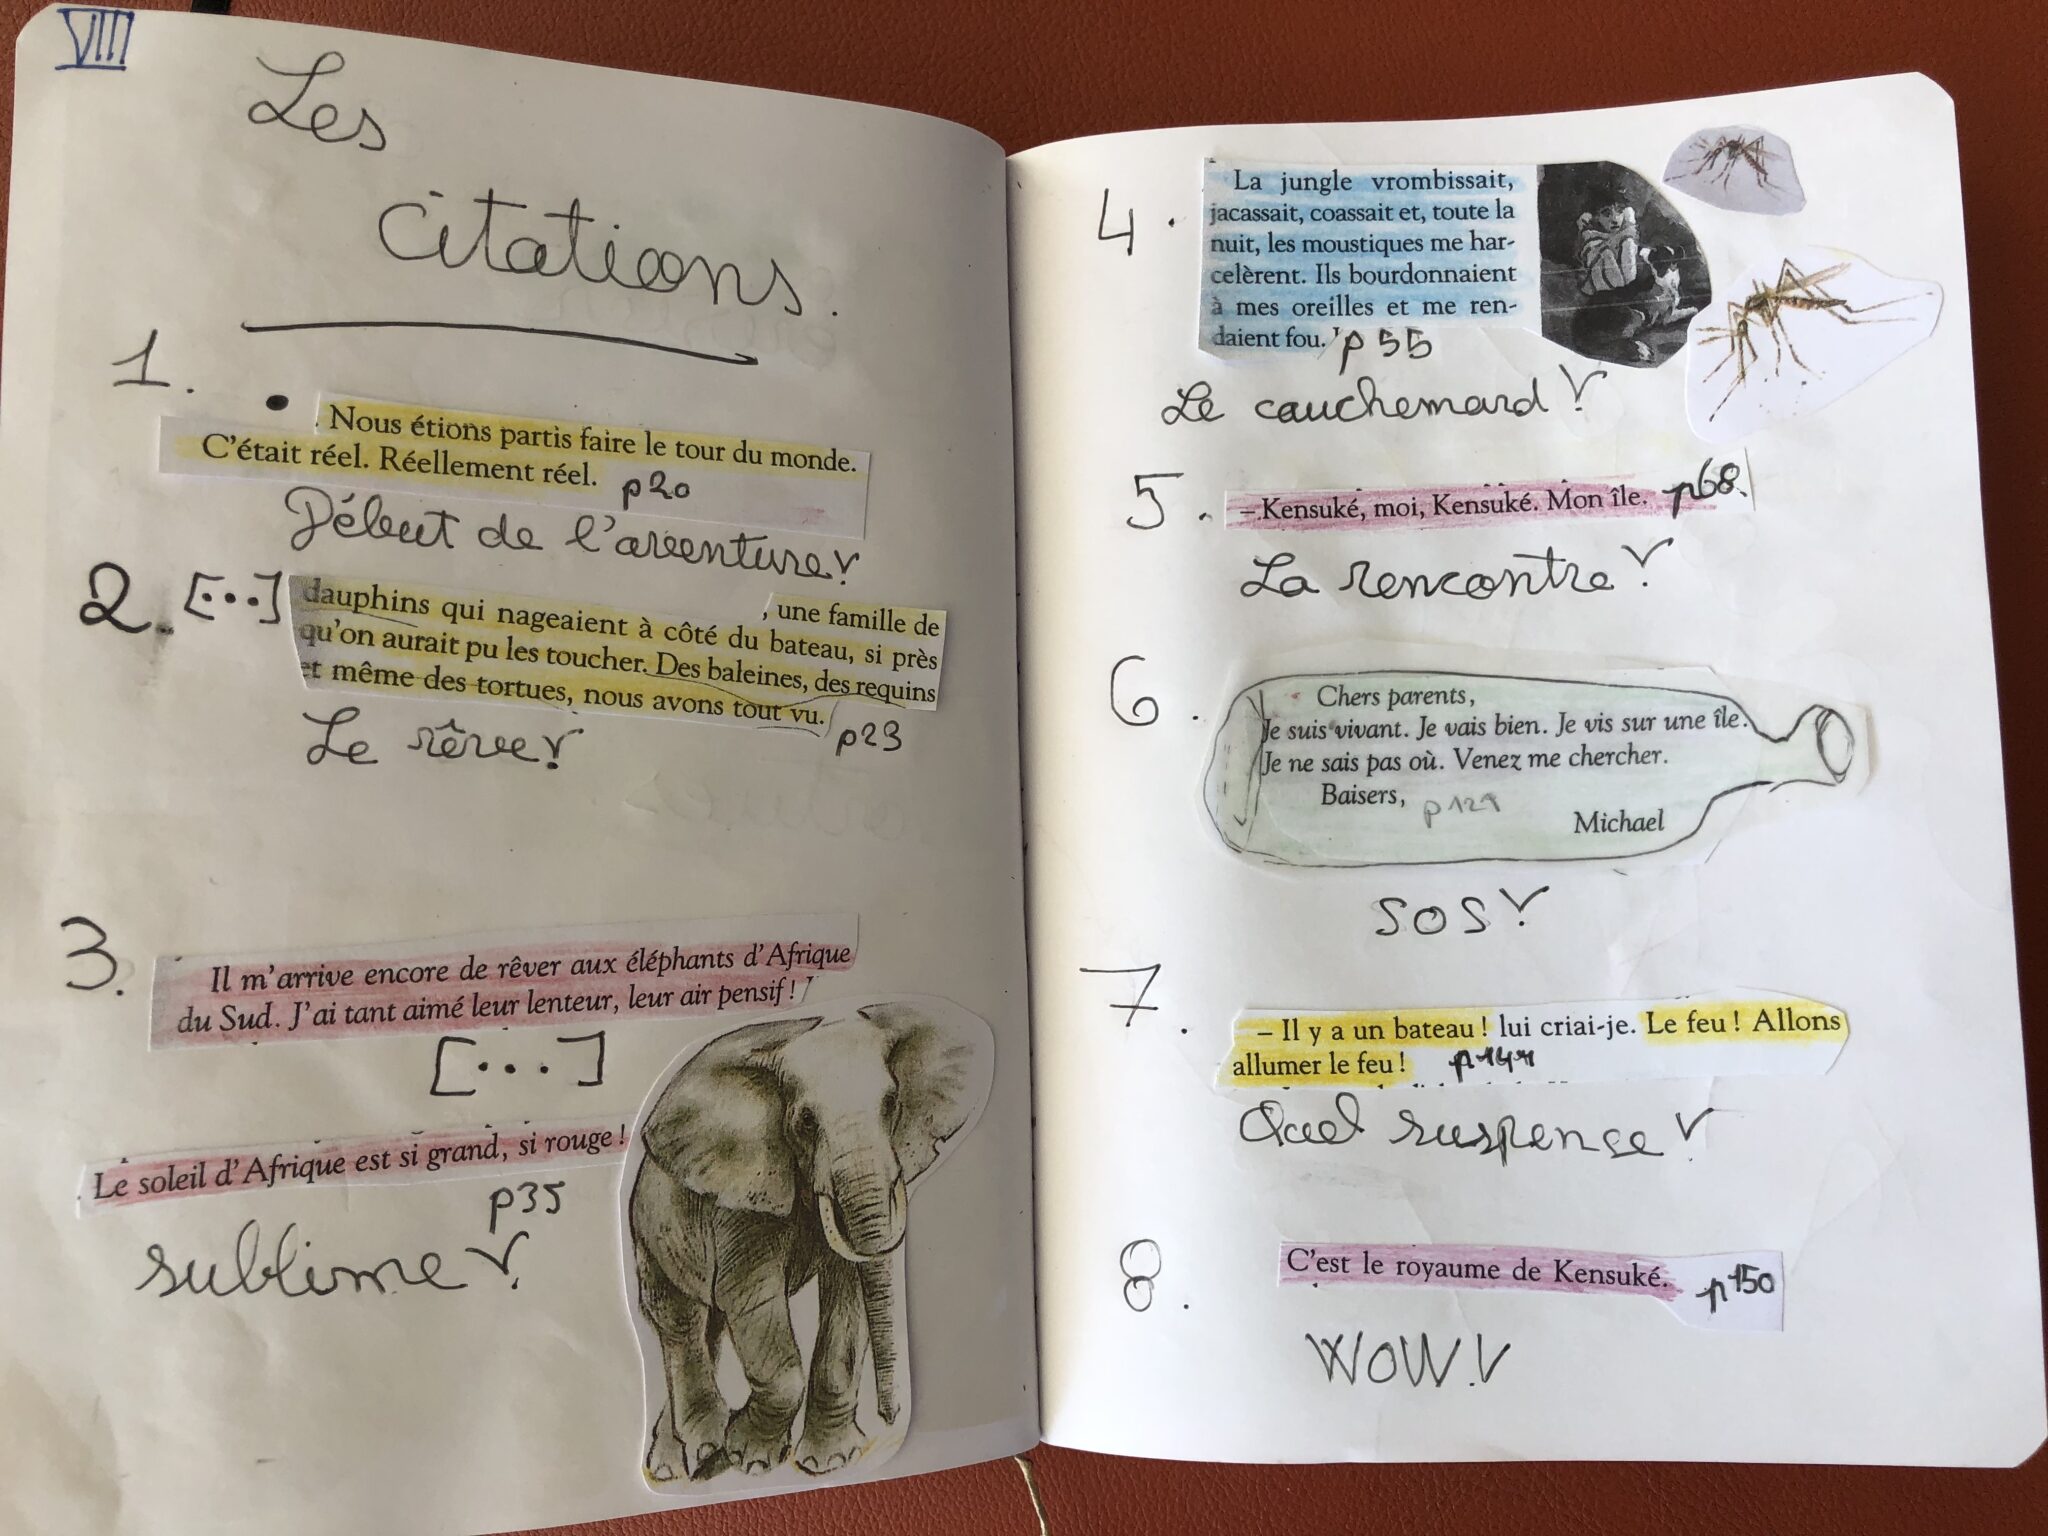 VIII
Les
citations.
1.
. Nous étions partis faire le tour du monde.
C'était réel. Réellement réel. p20
Début de l'aventure!
2. [...]
, une famille de
dauphins qui nageaient à côté du bateau, si près
qu'on aurait pu les toucher. Des baleines, des requins
et même des tortues, nous avons tout vu.
p23
Le rêve!
3.
Il m'arrive encore de rêver aux éléphants d'Afrique
du Sud. J'ai tant aimé leur lenteur, leur air pensif !
[...]
Le soleil d'Afrique est si grand, si rouge !
p35
sublime!
4.
La jungle vrombissait,
jacassait, coassait et, toute la
nuit, les moustiques me har-
celèrent. Ils bourdonnaient
à mes oreilles et me ren-
daient fou. p55
Le cauchemard!
5.
– Kensuké, moi, Kensuké. Mon île. p68.
La rencontre!
6.
Chers parents,
Je suis vivant. Je vais bien. Je vis sur une île.
Je ne sais pas où. Venez me chercher.
Baisers,
Michael
SOS!
7.
– Il y a un bateau ! lui criai-je. Le feu ! Allons
allumer le feu !
Quel suspense!
8.
C'est le royaume de Kensuké. p150
WOW!